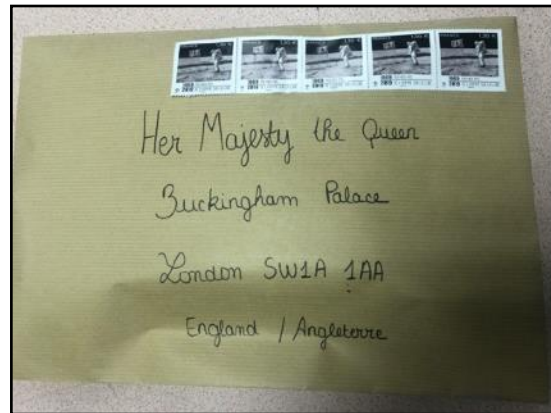 Her Majesty the Queen
Buckingham Palace
London SW1A 1AA
England / Angleterre